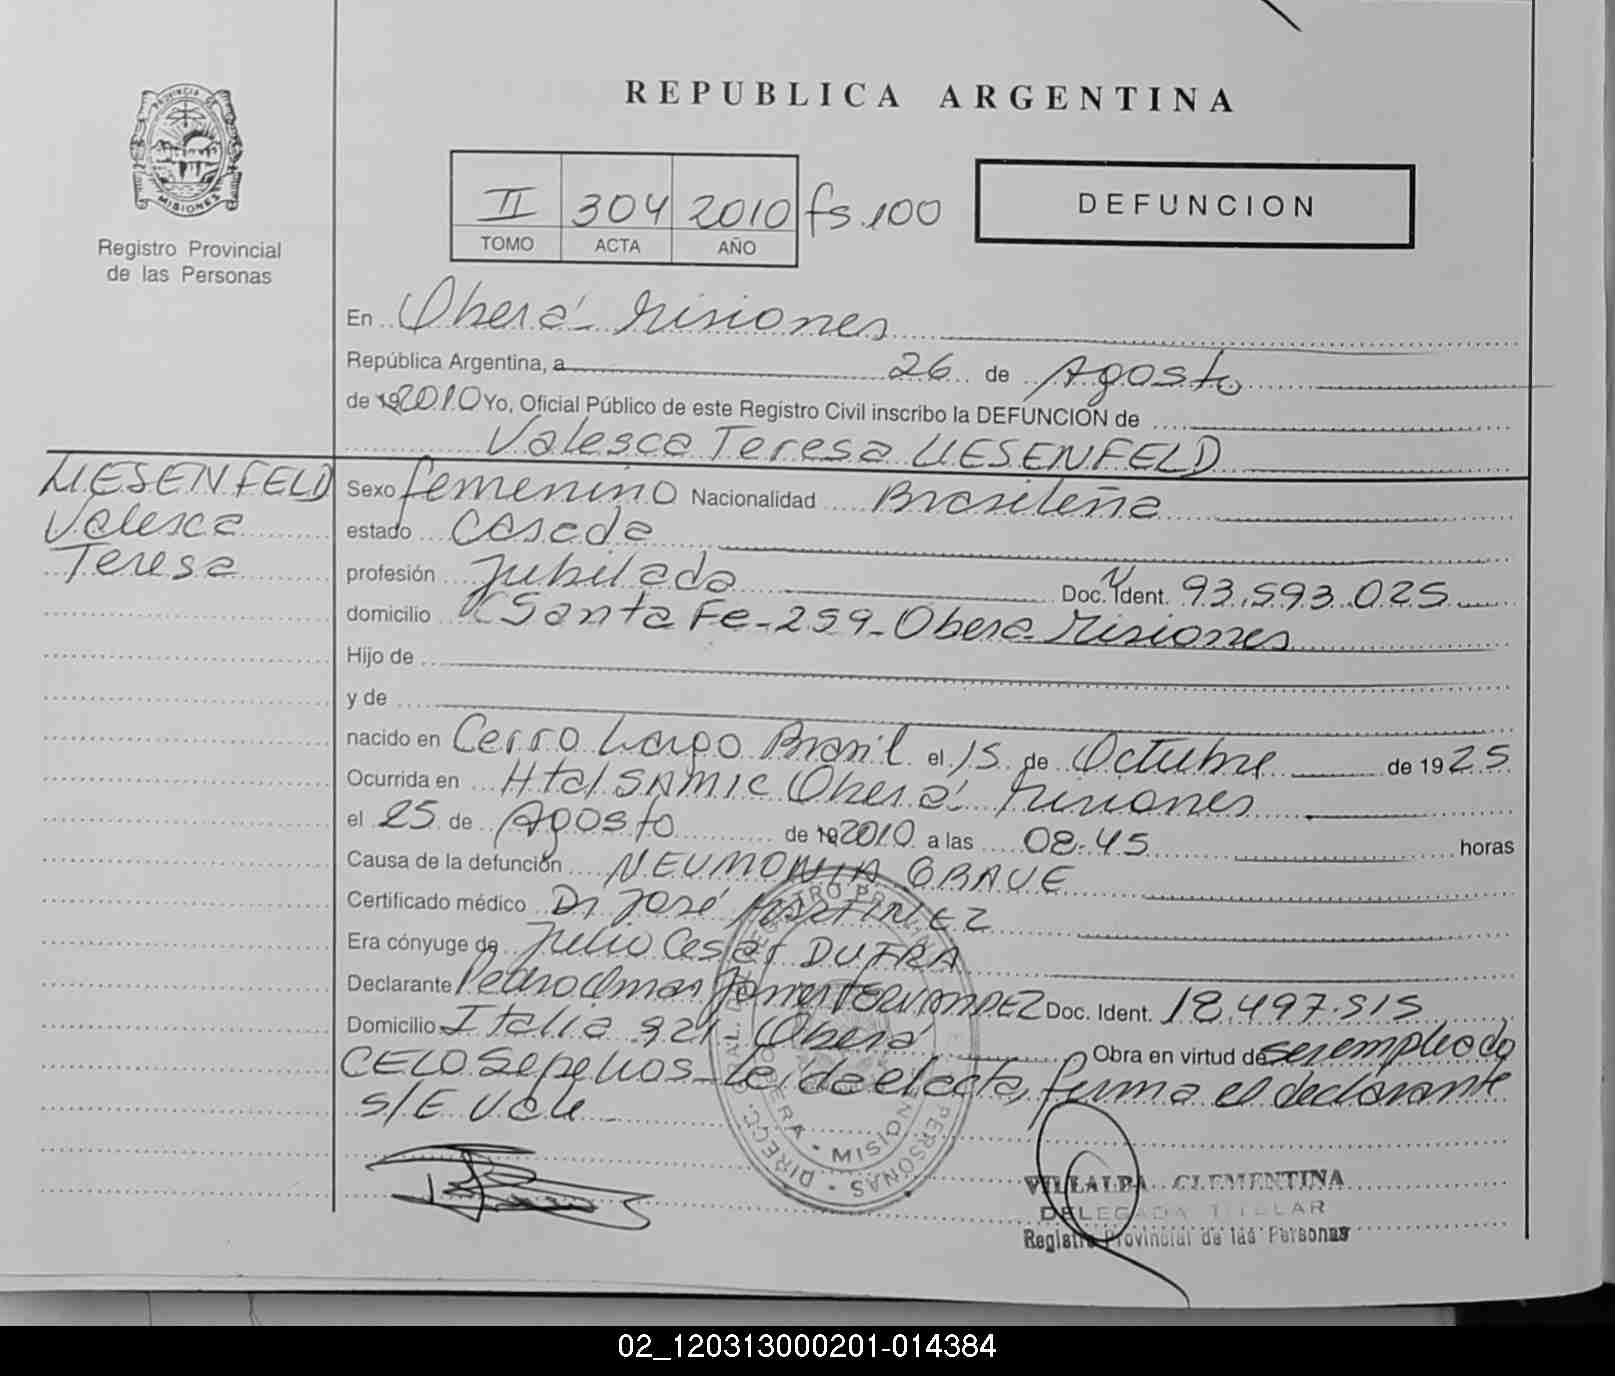 REPUBLICA ARGENTINA
PROVINCIA DE
MISIONES
Registro Provincial
de las Personas
II 304 2010 fs.100
TOMO ACTA AÑO
DEFUNCION
En Oberá Misiones
República Argentina, a 26 de Agosto
de 2010 Yo, Oficial Público de este Registro Civil inscribo la DEFUNCION de
Valesca Teresa UESENFELD
UESENFELD
Valesca
Teresa
Sexo femenino Nacionalidad Brasileña
estado Casada
profesión Jubilada Doc. Ident. 93.593.025
domicilio Santa Fe - 259 - Obera Misiones
Hijo de
y de
nacido en Cerro Largo Brasil el 15 de Octubre de 1925
Ocurrida en Htal SAMIC Oberá Misiones
el 25 de Agosto de 2010 a las 08.45 horas
Causa de la defunción NEUMONIA GRAVE
Certificado médico Dr José MARTINEZ
Era cónyuge de Julio Cesar DUTRA
Declarante Pedro Omar FERNANDEZ Doc. Ident. 18.497.515
Domicilio Italia 921 Oberá Obra en virtud de ser empleado
CELO Sepelios - Leída el acta, firma el declarante
S/E Vale
OBERA - MISIONES
VILLALBA CLEMENTINA
DELEGADA TITULAR
Registro Provincial de las Personas
02_120313000201-014384